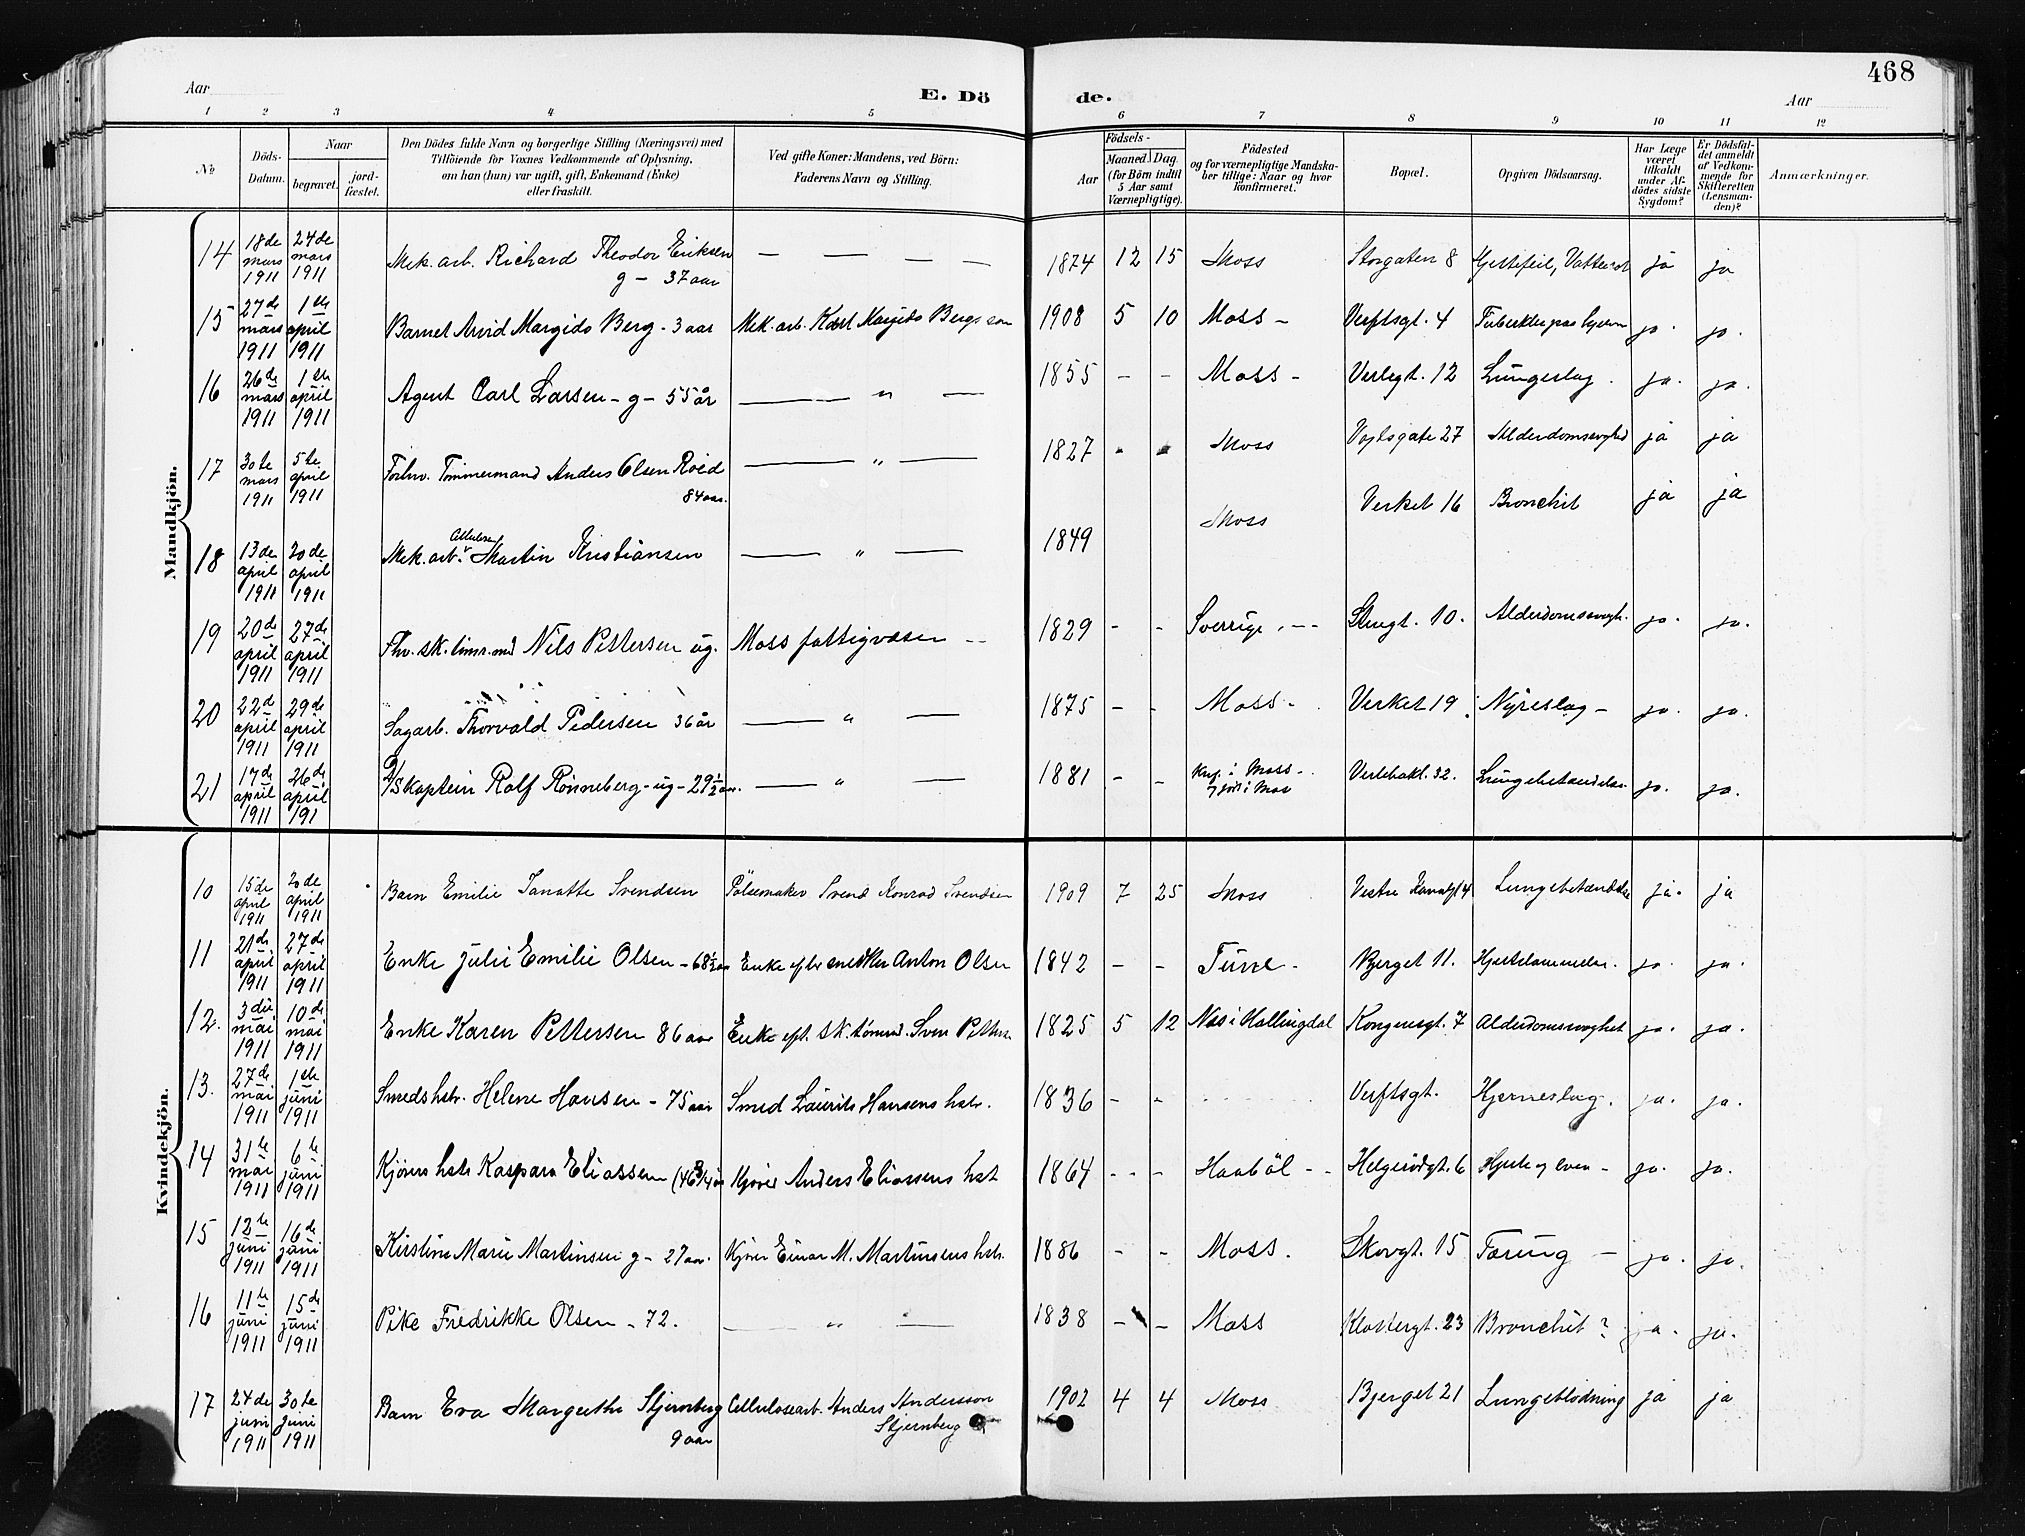 468
Aar
E. Dö
de.
Aar
1 2 3 4 5 6 7 8 9 10 11 12
№
Döds-
Datum.
Naar
begravet.
jord-
fæstet.
Den Dödes fulde Navn og borgerlige Stilling (Næringsvei) med
Tilföiende for Voxnes Vedkommende af Oplysning,
om han (hun) var ugift, gift, Enkemand (Enke)
eller fraskilt.
Ved gifte Koner: Mandens, ved Börn:
Faderens Navn og Stilling.
Födsels-
Aar
Maaned. Dag.
(for Börn indtil
5 Aar samt
Værnepligtige).
Födested
og for værnepligtige Mandska-
ber tillige: Naar og hvor
konfirmeret.
Bopæl.
Opgiven Dödsaarsag.
Har Læge
været
tilkaldt
under Af-
dödes sidste
Sygdom?
Er Dödsfal-
det anmeldt
af Vedkom-
mende for
Skifteretten
(Lensman-
den)?
Anmærkninger.
Mandkjön.
14 18de mars 1911 24de mars 1911 Mek. arb. Richard Theodor Eriksen g - 37 aar — — — — 1874 12 15 Moss Storgaten 8 ja ja
15 27de mars 1911 1ste april 1911 Barnet Arvid Margido Berg - 3 aar Mek. arb. Karl Margido Bergs søn 1908 5 10 Moss - Verftsgt. 4 ja. ja.
16 26de mars 1911 1ste april 1911 Agent Carl Larsen - g - 55 år — " — 1855 - - Moss - Verlegt. 12 Lungeslag. ja. ja.
17 30te mars 1911 5te april 1911 Forhv. Tømmermand Anders Olsen Roed 84 aar. — " — 1827 - - Moss Vogtsgate 27 Alderdomssvaghed ja ja
18 13de april 1911 20de april 1911 Mek. arb. Martin Kristiansen — " — 1849 Moss Verket 16 Bronchit ja ja
19 20de april 1911 27de april 1911 Fhv. sk. timr.md Nils Pettersen ug. Moss fattigvæsen -- 1829 - - Sverrige Stengt. 10. Alderdomssvagh. ja. ja.
20 22de april 1911 29de april 1911 Sagarb. Thorvald Pedersen 36 år — " — 1875 - - Moss - Verket 19 Nyreslag - ja. ja.
21 17de april 1911 26de april 191 D/Skaptein Rolf Rønneberg - ug - 29 1/2 aar. — " — 1881 - - i Moss - 32. Lungebetændelse ja. ja.
Kvindekjön.
10 15de april 1911 20de april 1911 Barn Emilie Janatte Svendsen Pölsemaker Svend Konrad Svendsen 1909 7 25 Moss Vestre Kanalgt 4 Lungebetændelse ja. ja
11 21de april 1911 27de april 1911 Enke Julie Emilie Olsen - 68 1/2 aar Enke efter snedker Anton Olsen 1842 - - Tune - Bjerget 11. Hjertelammelse. ja. ja.
12. 3die mai 1911 10de mai 1911 Enke Karen Pettersen 86 aar Enke eft. sk. tømmd. Sven Petters. 1825 5 12 Næs i Hallingdal Kongensgt. 7 Alderdomssvaghet ja. ja.
13. 27de mai 1911 1ste juni 1911 Smedshstr. Helene Hansen - 75 aar Smed Laurits Hansens hstr. 1836 - - Verftsgt. Hjerneslag. ja. ja.
14 31te mai 1911 6te juni 1911 Kjørers hstr Kaspara Eliassen (46 3/4 år Kjører Anders Eliassens hst 1864 - - - Haabøl - - Helgerødgt. 6 Hjerte og ja. ja.
15 12te juni 1911 16de juni 1911 Kirstine Marie Martinsen g - 27 aar. Kjører Einar M. Martinsens hstr. 1886 - - Moss. Skovgt. 15 Tæring - ja. ja.
16 11te juni 1911 15de juni 1911 Pike Fredrikke Olsen - 72. — " — 1838 - - Moss Klostergt. 23 Bronchit? ja. ja.
17 24de juni 1911 30te juni 1911 Barn Eva Margrethe Stjernberg 9 aar Cellulosearb. Anders Andersson Stjernberg 1902 4 4 Moss Bjerget 21 Lungeblödning ja ja